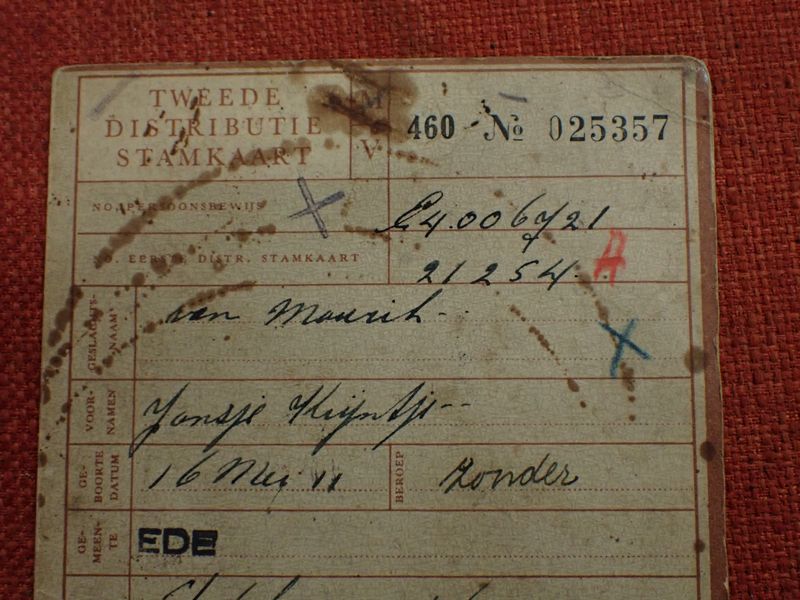 TWEEDE
DISTRIBUTIE
STAMKAART
M
V
460 No 025357
NO. PERSOONSBEWIJS
006721
NO. EERSTE DISTR. STAMKAART
21254 A
GESLACHTS-
NAAM
van Maurik
VOOR-
NAMEN
Jansje Krijntje
GE-
BOORTE
DATUM
16 Mei 11
BEROEP
Zonder
GE-
MEEN-
TE
EDE